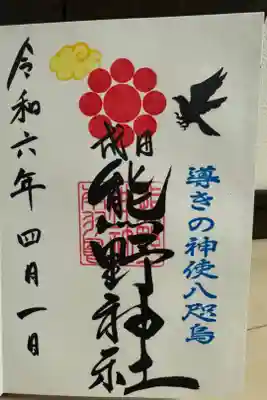 導きの神使八咫烏
熊野神社
令和六年四月一日